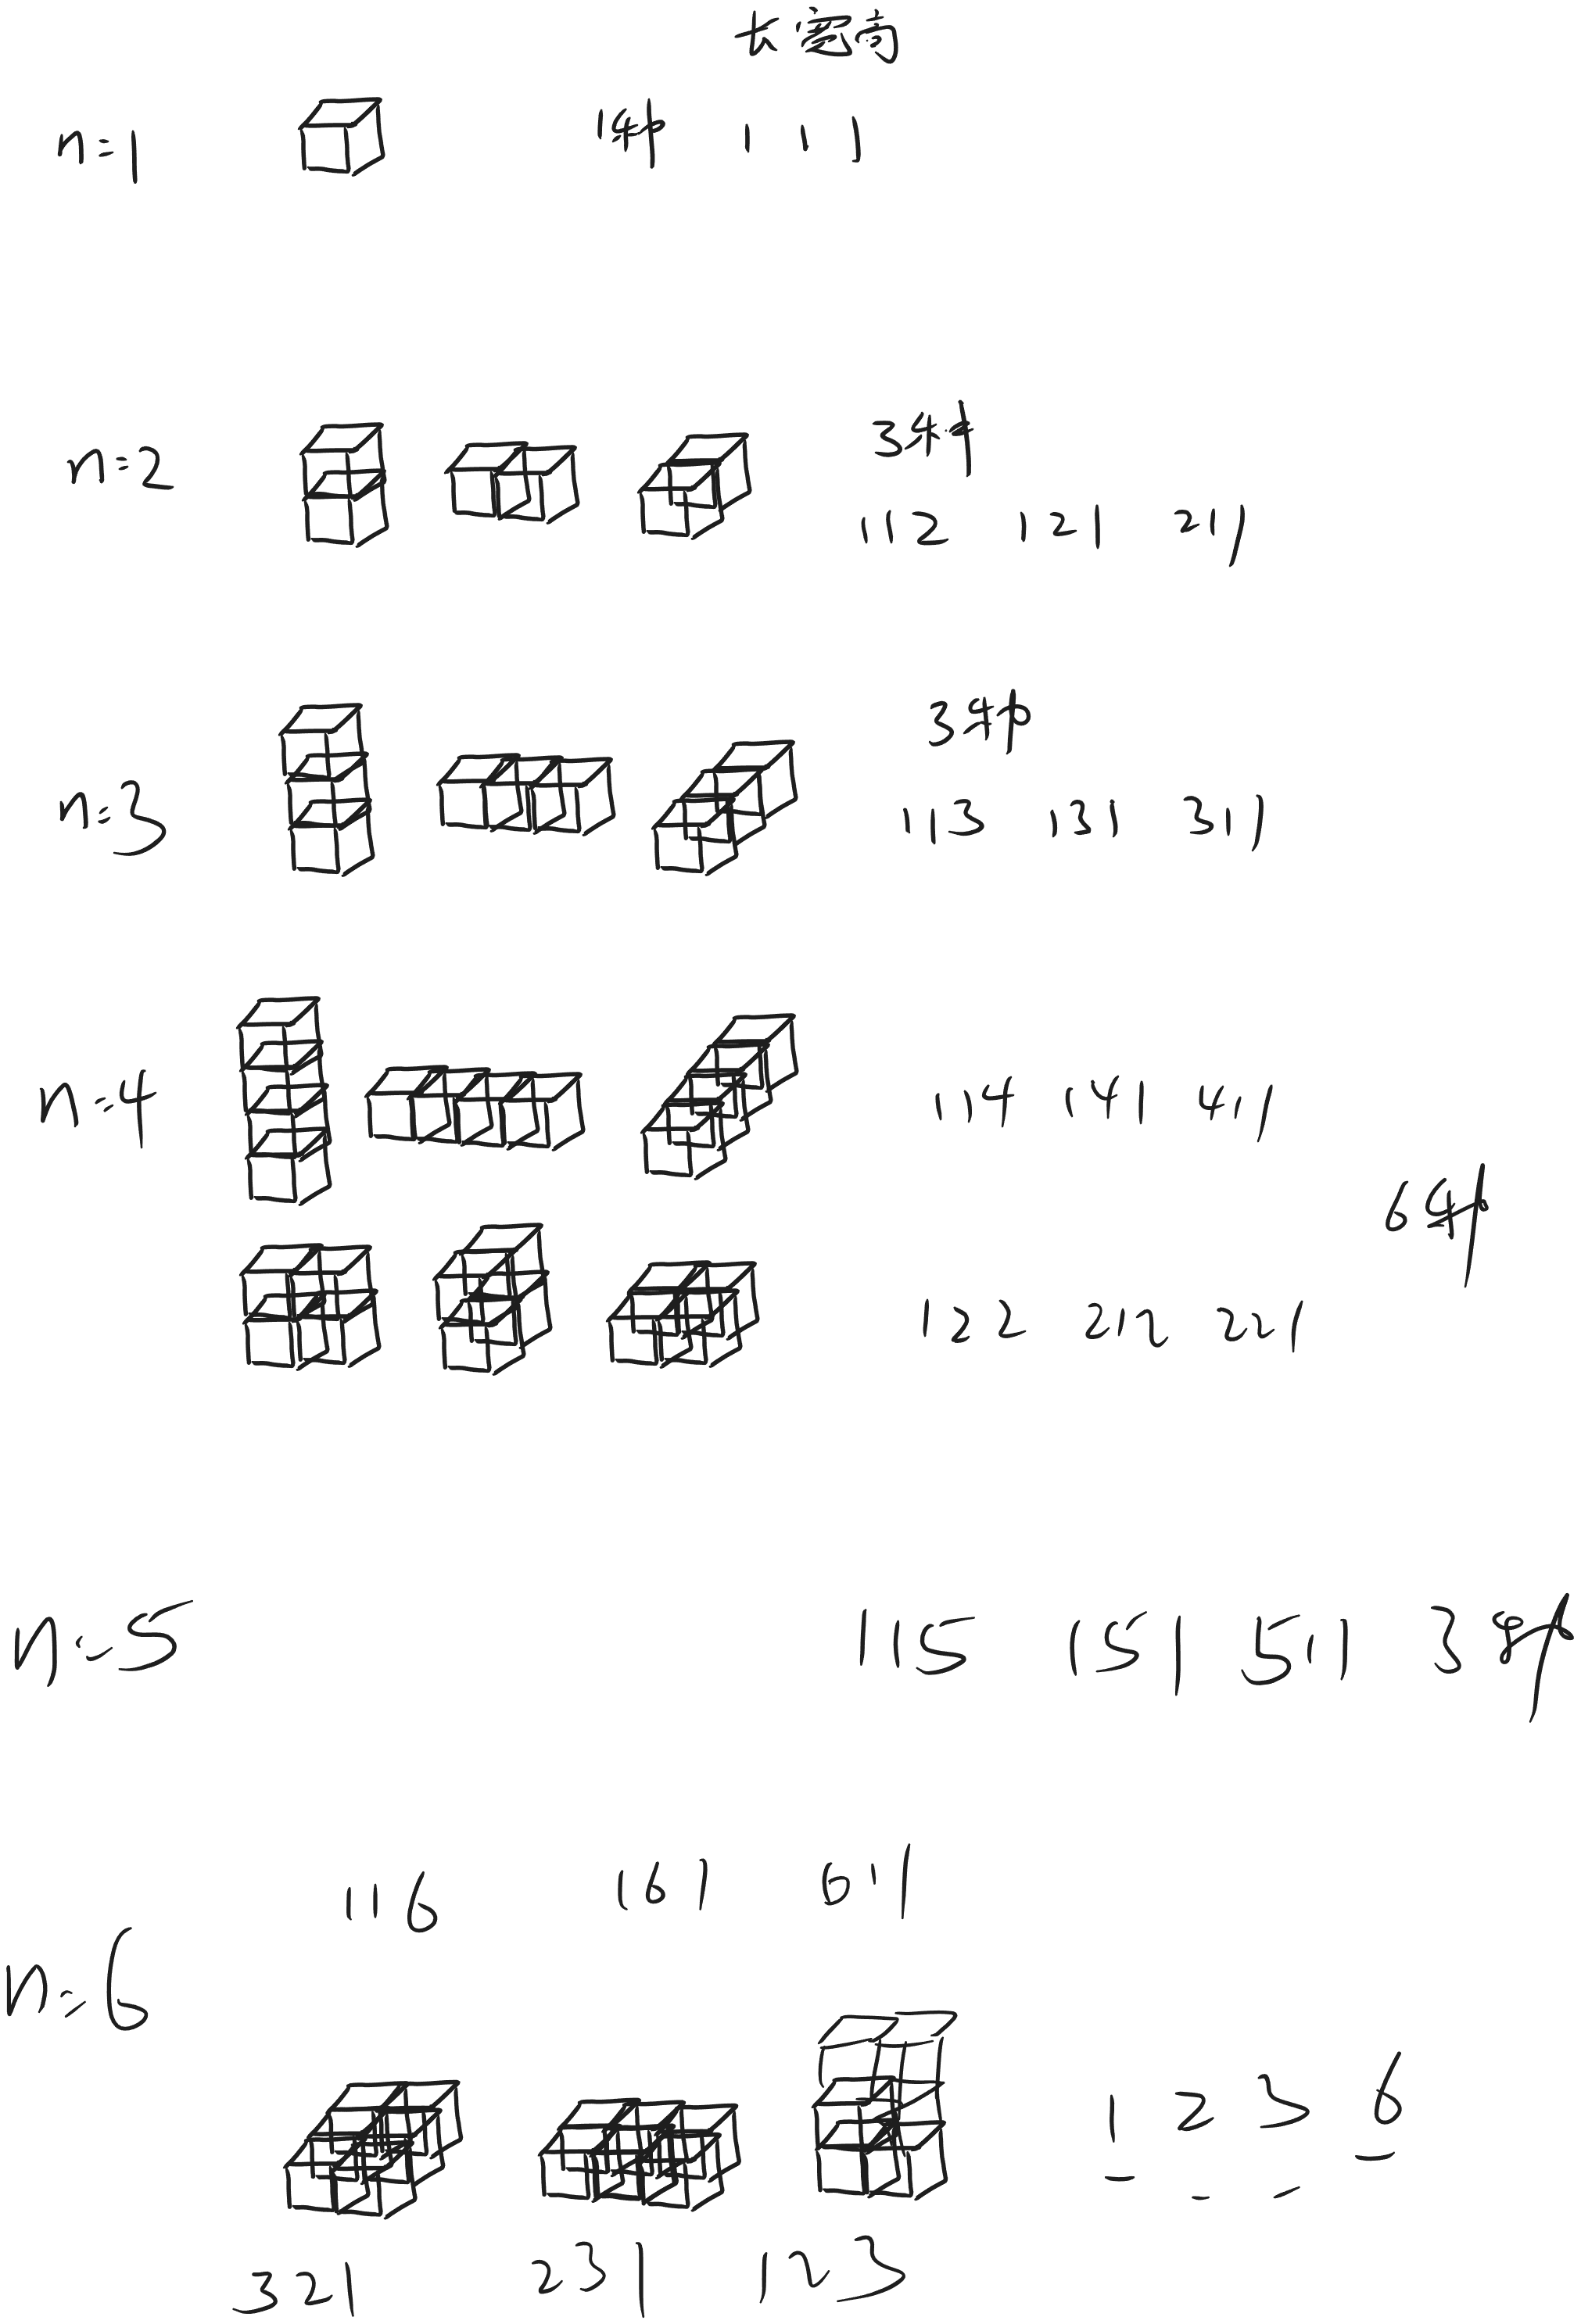 长宽高
n=1 1种 1 1 1
n=2 3种
112 121 211
n=3 3种
113 131 311
n=4 114 141 411
6种
122 212 221
n=5 115 151 511 3种
116 161 611
n=6
1 2 3 6
321 231 123